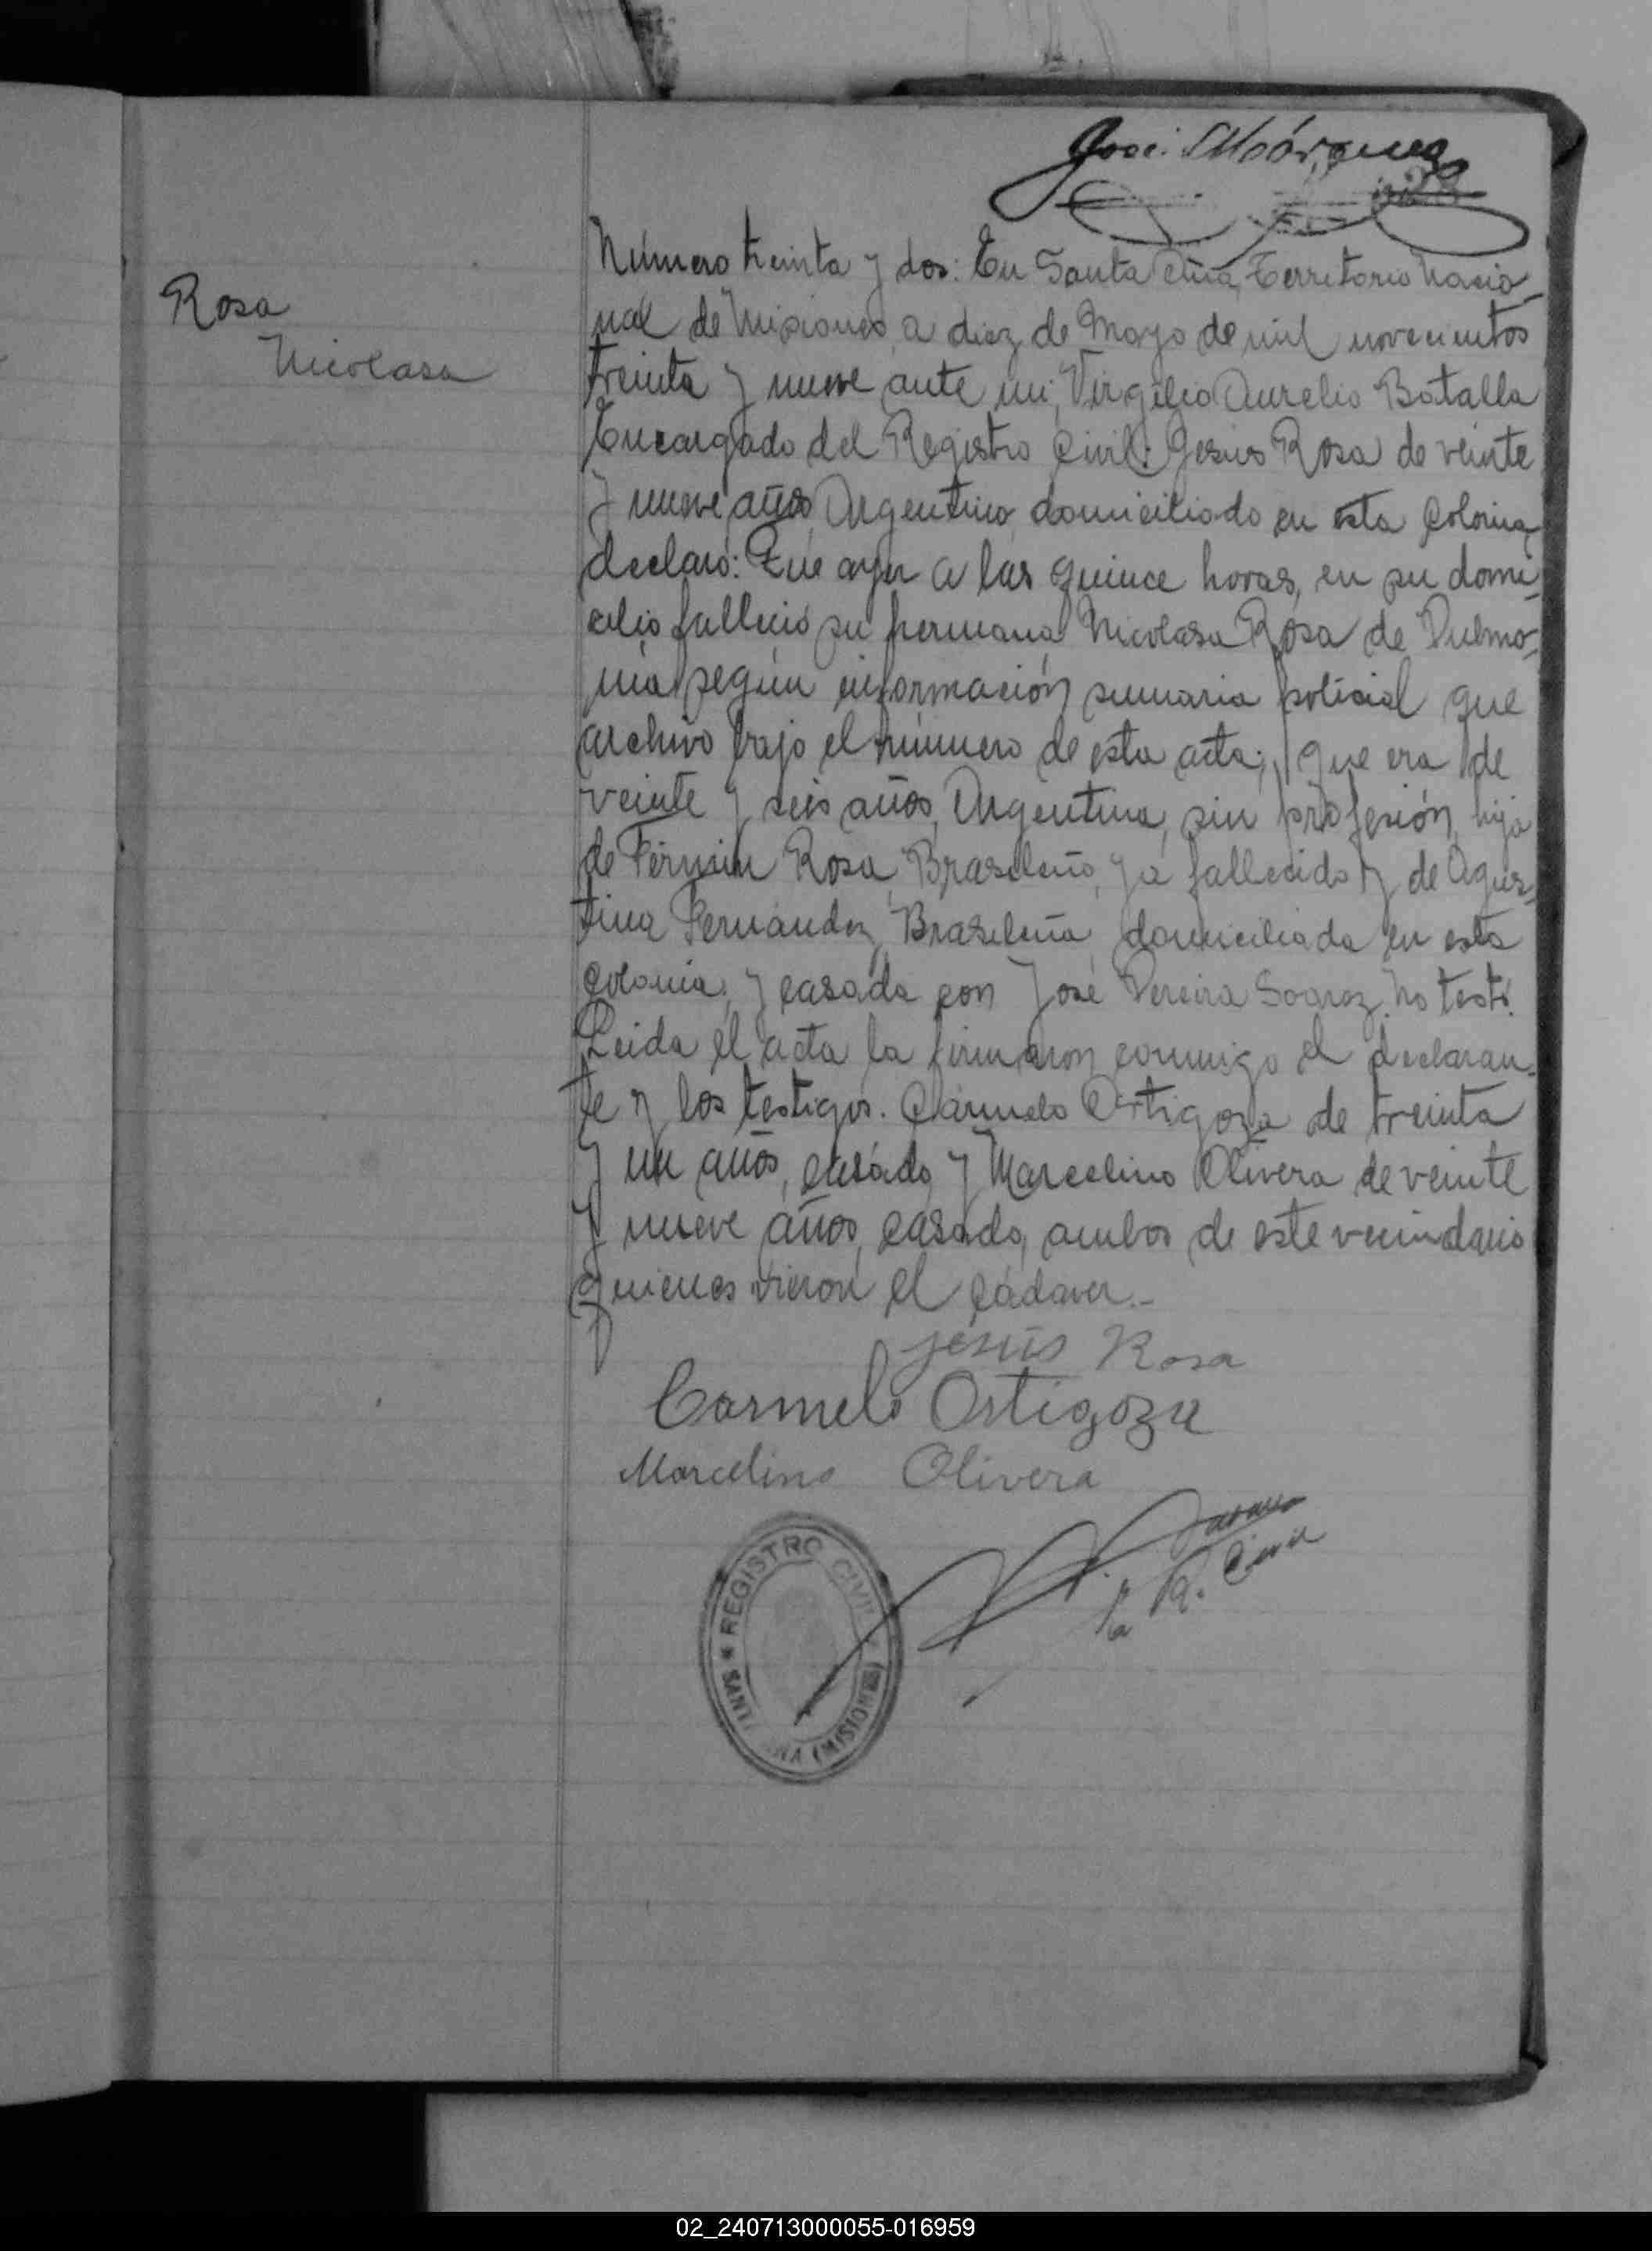 José Márquez
Rosa
Nicolasa
Número treinta y dos: En Santa Ana, Territorio Nacio-
nal de Misiones, a diez de Mayo de mil novecientos
treinta y nueve ante mi, Virgilio Aurelio Batalla
Encargado del Registro Civil: Jesús Rosa de veinte
y nueve años, Argentino, domiciliado en esta Colonia,
declaró: Que ayer a las quince horas, en su domi-
cilio falleció su hermana Nicolasa Rosa de Pulmo-
nía según información sumaria policial que
archivo bajo el número de esta acta; que era de
veinte y seis años, Argentina, sin profesión, hija
de Fermin Rosa, Brasileño, ya fallecido y de Agus-
tina Fernández, Brasileña, domiciliada en esta
Colonia, y casada con José Pereira Soarez. No testó.
Leida el acta la firmaron conmigo el declaran-
te y los testigos. Cármelo Ortigoza de treinta
y un años, casado y Marcelino Olivera de veinte
y nueve años, casado, ambos de este vecindario
quienes vieron el cádaver.-
Jesús Rosa
Carmelo Ortigoza
Marcelino Olivera
R. Civil
REGISTRO CIVIL
* SANTA ANA (MISIONES)
02_240713000055-016959